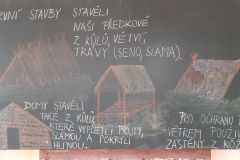 RVNÍ STAVBY STAVĚLI
NAŠI PŘEDKOVÉ
Z KŮLŮ, VĚTVÍ,
TRÁVY (SENO, SLÁMA).
DOMY STAVĚLI
TAKÉ Z KŮLŮ,
KTERÉ VYPLETLI PRUTY,
SLÁMOU A POKRYLI
HLÍNOU.
PRO OCHRANU
VĚTREM POUŽI
ZÁSTĚNY Z